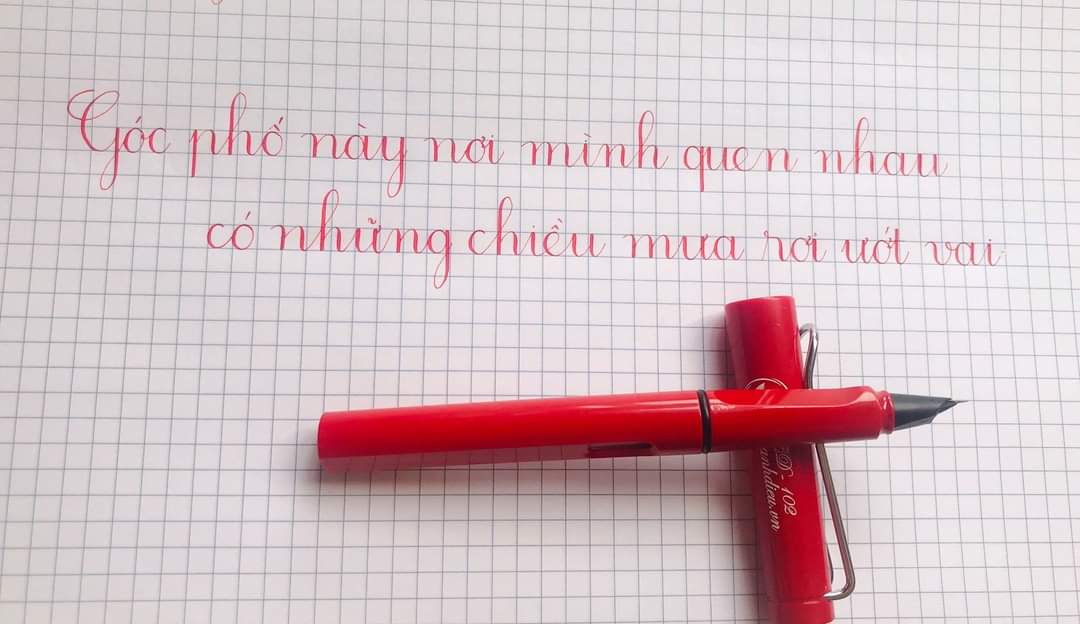 Góc phố này nơi mình quen nhau
có những chiều mưa rơi ướt vai
D-102
anhdieu.vn